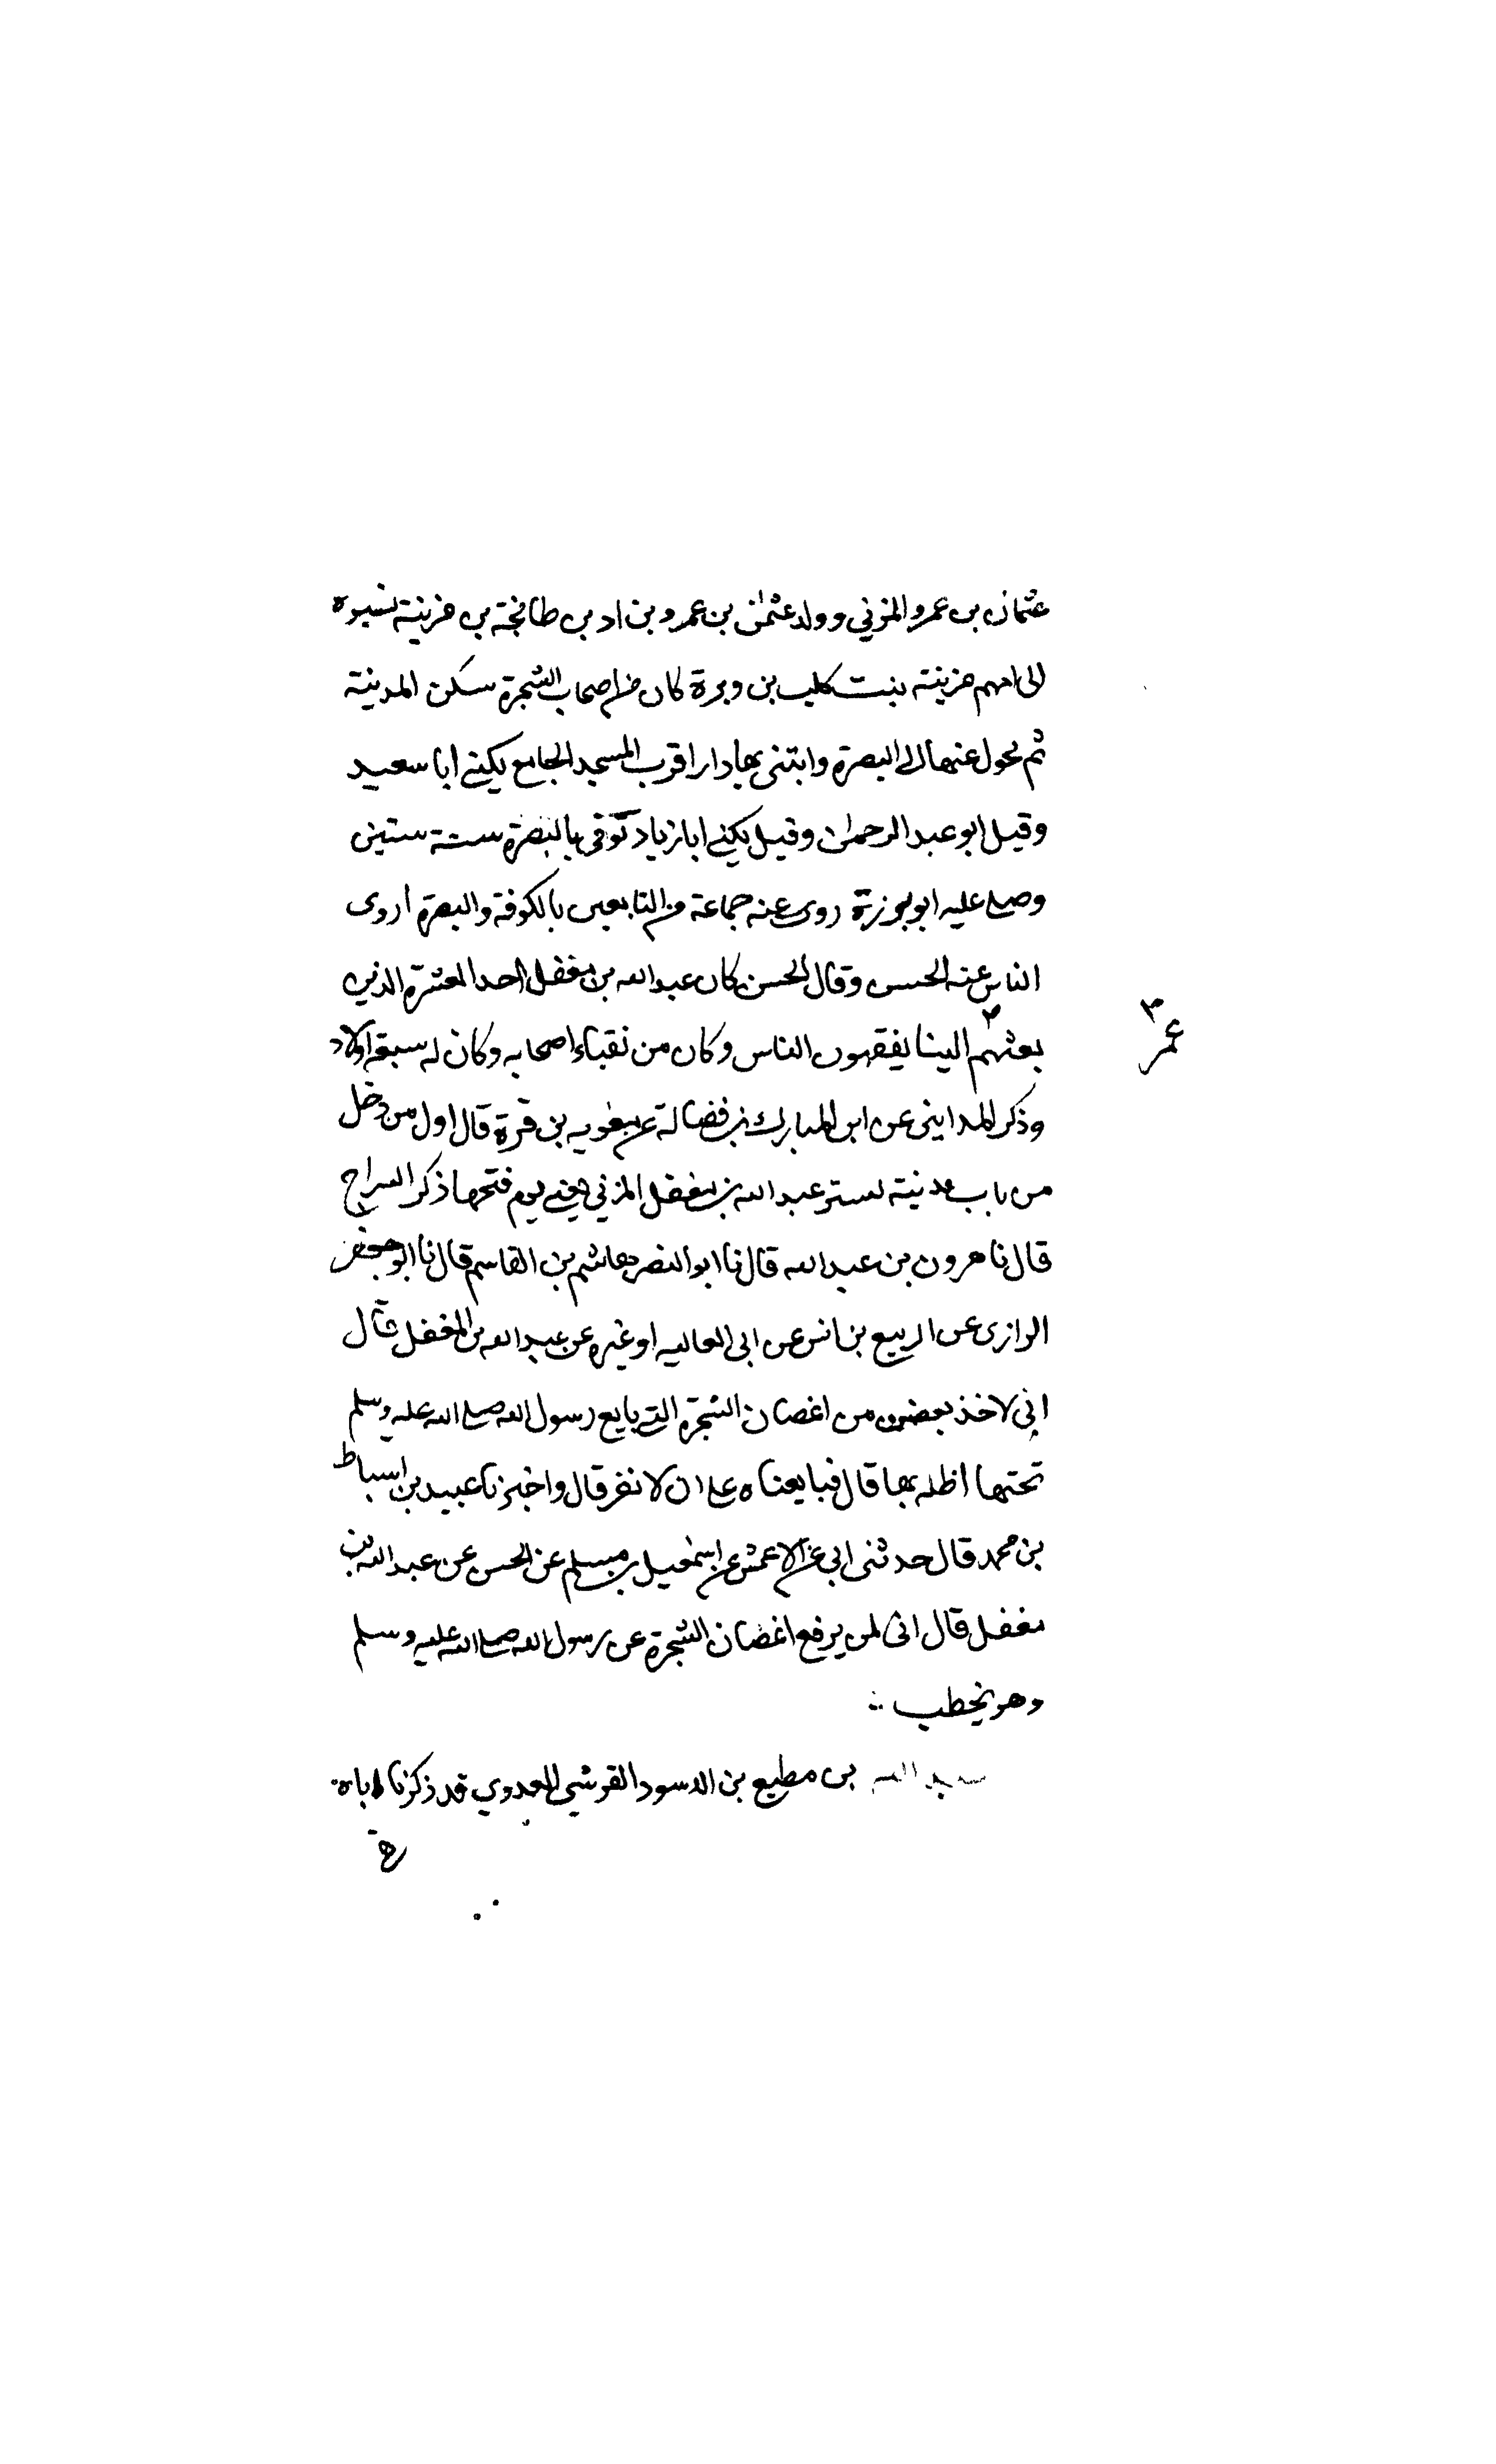 عثمان بن عمرو المزني وولد عثمن بن عمرو بن اد بن طانجة بن مزينة نسبوه
الى امهم مزينة بنت كليب بن وبرة كان من اصحاب الشجرة سكن المدينة
ثم تحول عنها الى البصرة وابتنى بها دارا قرب المسجد الجامع يكنى ابا سعيد
وقيل ابو عبد الرحمن وقيل يكنى ابا زياد توفى بالبصرة سنة ستين
وصلى عليه ابو برزة روى عنه جماعة من التابعين بالكوفة والبصرة اروى
الناس عنه الحسن وقال الحسن كان عبد الله بن مغفل احد العشرة الذين
بعثهم الينا ٣ يفقهون الناس وكان من نقباء اصحابه وكان له سبعة اولاد
٣ عمر
وذكر المداينى عن ابن المبارك بن فضالة عن معوية بن قرة قال اول من دخل
من باب مدينة تستر عبد الله بن مغفل المزني يعنى يوم فتحها ذكر السراج
قال نا هرون بن عبد الله قال نا ابو النضر هاشم بن القاسم قال نا ابو جعفر
الرازى عن الربيع بن انس عن ابى العاليه او غيره عن عبد الله بن المغفل قال
انى لاخذ بعض من اغصان الشجرة التى بايع رسول الله صلى الله عليه وسلم
تحتها اظله بها قال فبايعناه على ان لا نفر قال واخبرنا عبيد بن اسباط
بن محمد قال حدثنى ابى عن الاعمش عن اسمعيل بن مسلم عن الحسن عن عبد الله بن
مغفل قال انى لمن يرفع اغصان الشجرة عن رسول الله صلى الله عليه وسلم
وهو يخطب
عبد الله بن مطيع بن الاسود القرشي العدوي قد ذكرنا اباه